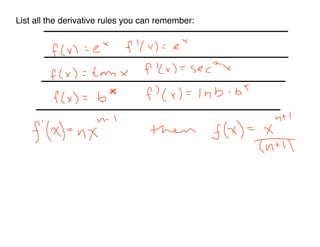 List all the derivative rules you can remember:
f(x) = e^x f'(x) = e^x
f(x) = tan x f'(x) = sec^2 x
f(x) = b^x f'(x) = ln b · b^x
f'(x) = nx^(n-1) then f(x) = x^(n+1)/(n+1)